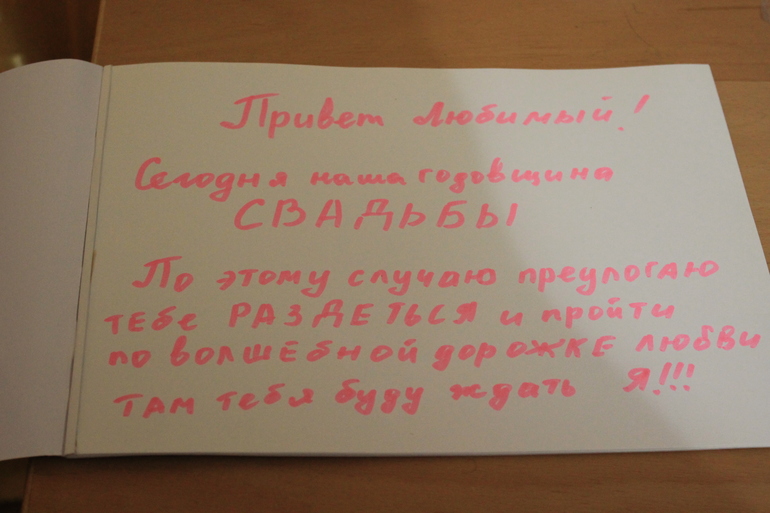 Привет Любимый!
Сегодня наша годовщина
СВАДЬБЫ
По этому случаю предлогаю
тебе РАЗДЕТЬСЯ и пройти
по волшебной дорожке любви
там тебя буду ждать Я!!!